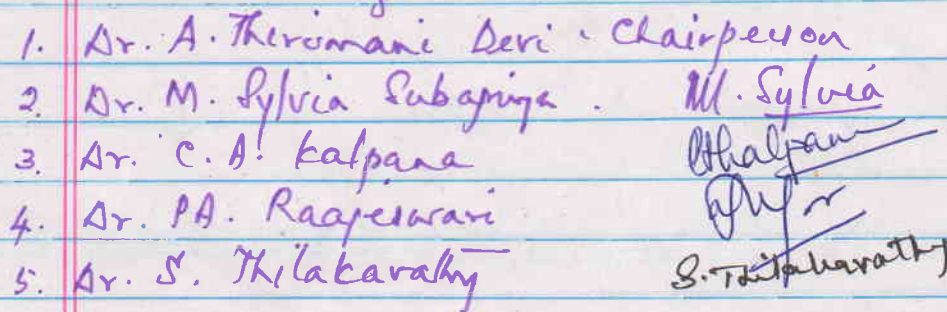 1. Dr. A. Thirumani Devi . Chairperson
2. Dr. M. Sylvia Subapriya . M. Sylvia
3. Dr. C. A. Kalpana
4. Dr. PA. Raajeswari
5. Dr. S. Thilakavathy S. Thilakavathy